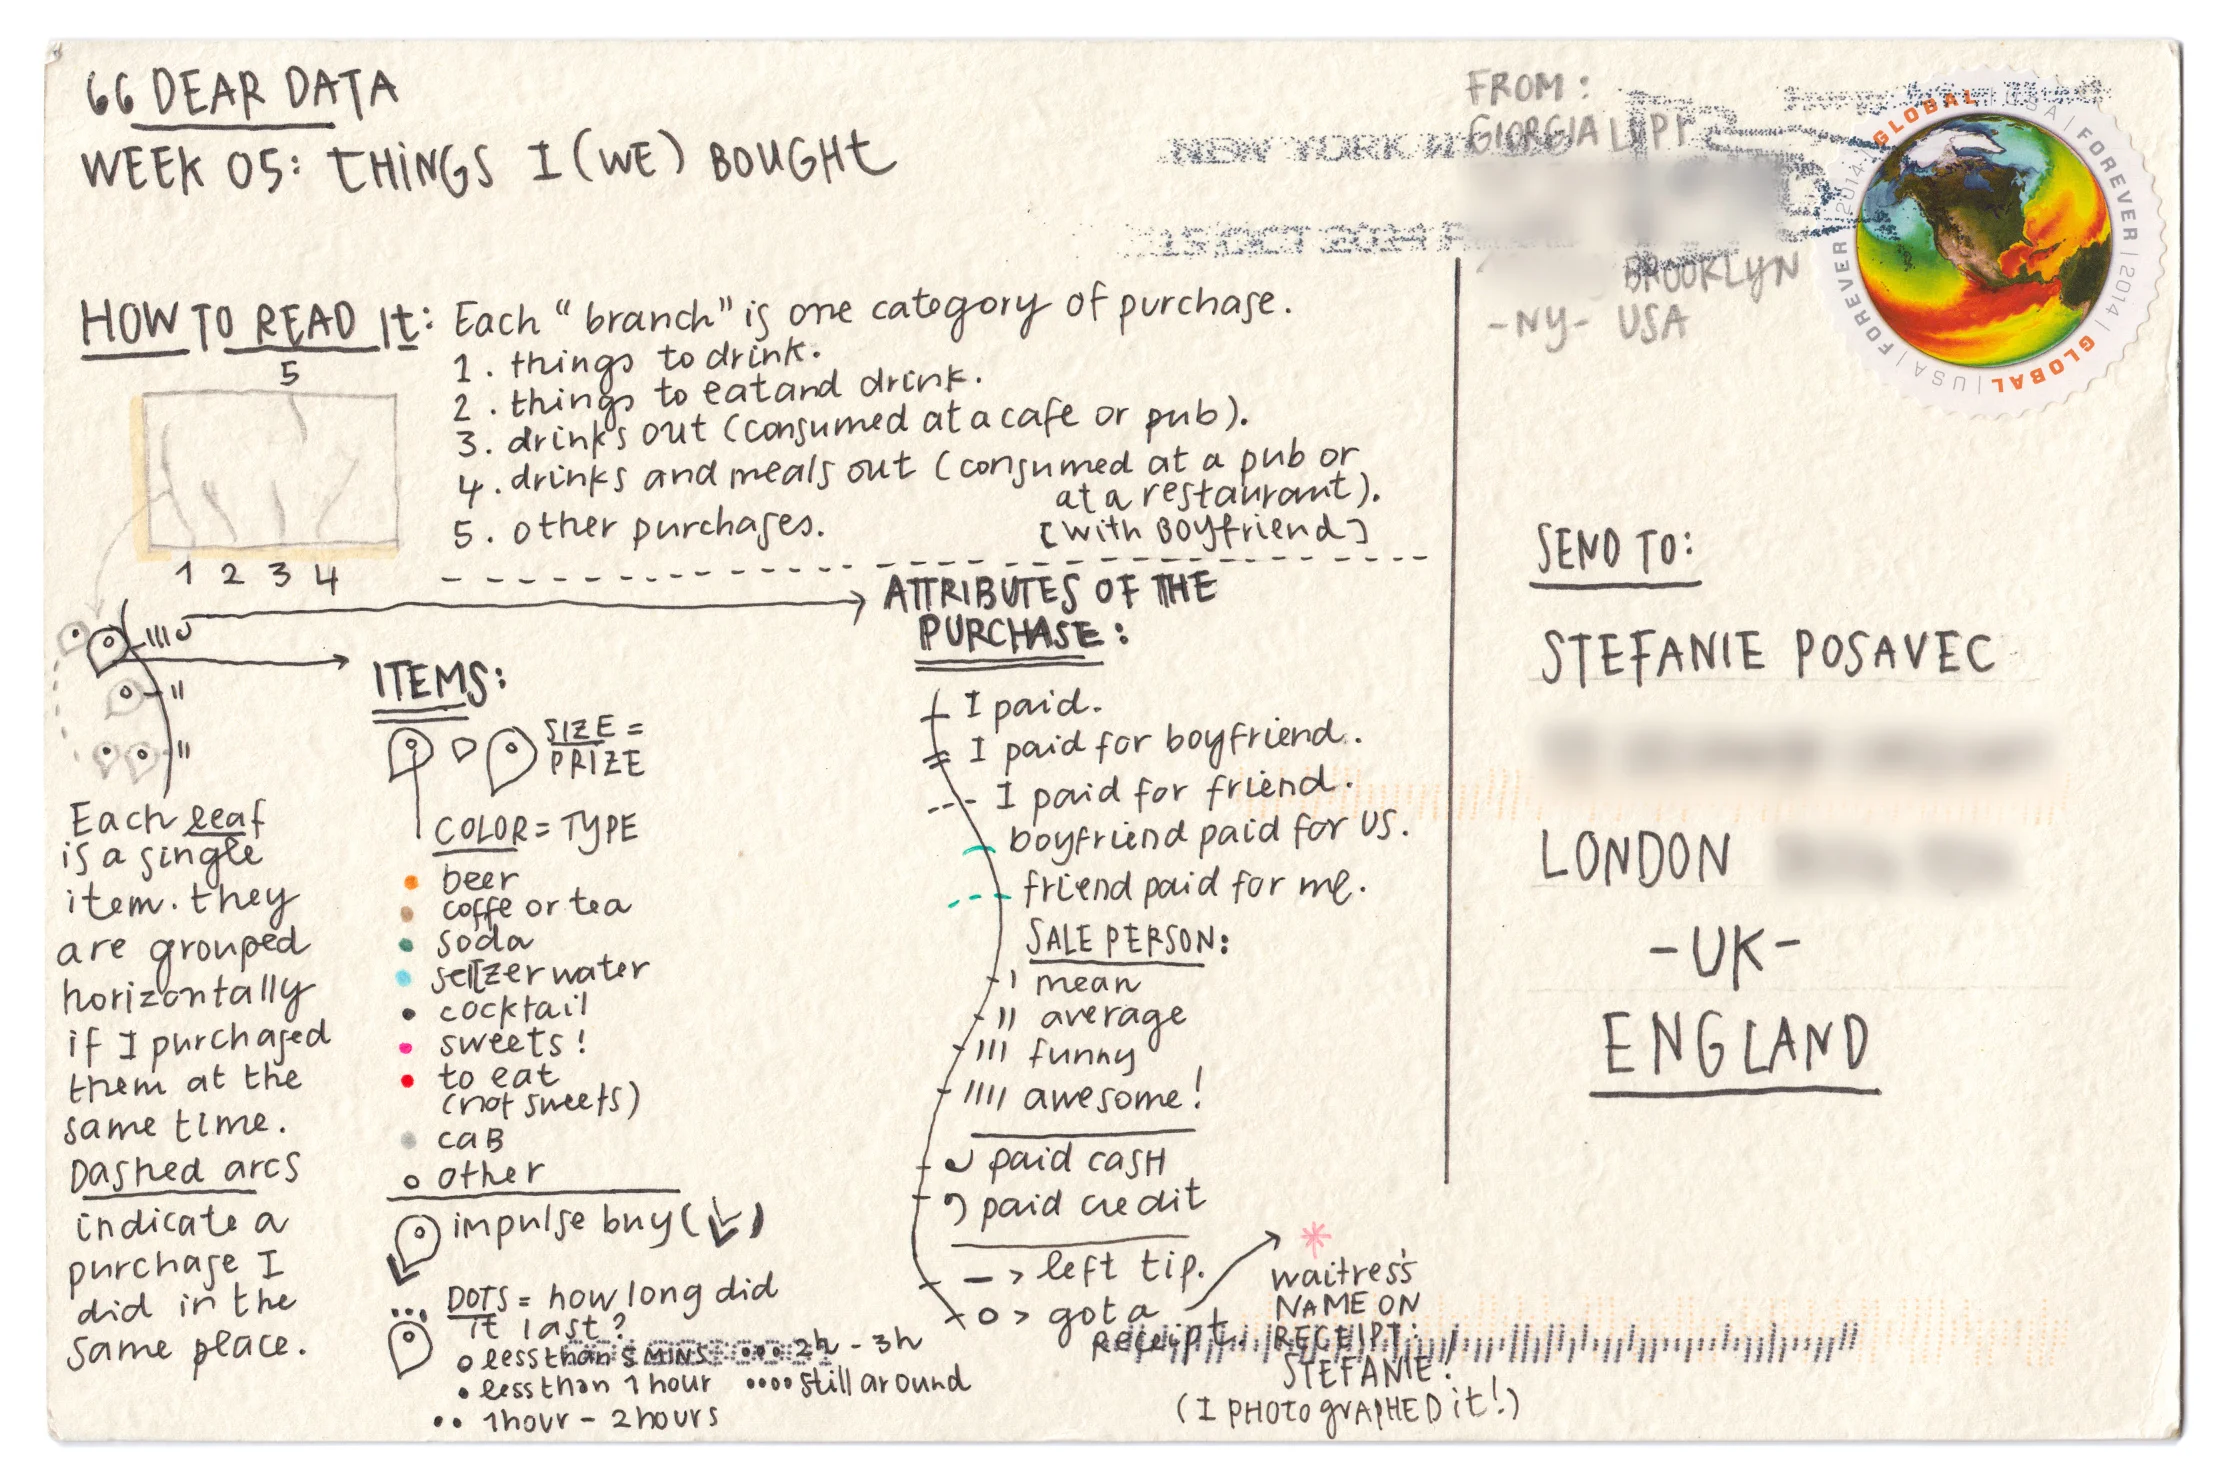 66 DEAR DATA
WEEK 05: THINGS I (WE) BOUGHT
HOW TO READ It: Each "branch" is one category of purchase.
1. things to drink.
2. things to eat and drink.
3. drinks out (consumed at a cafe or pub).
4. drinks and meals out (consumed at a pub or
at a restaurant).
5. other purchases.
[with Boyfriend]
5
1 2 3 4
Each leaf
is a single
item. they
are grouped
horizontally
if I purchased
them at the
same time.
Dashed arcs
indicate a
purchase I
did in the
same place.
ITEMS:
SIZE =
PRIZE
COLOR = TYPE
beer
coffe or tea
soda
seltzer water
cocktail
sweets!
to eat
(not sweets)
caB
other
impulse buy ( )
DOTS = how long did
it last?
less than 5 MINS
less than 1 hour
1 hour - 2 hours
2h - 3h
still around
ATTRIBUTES OF THE
PURCHASE:
I paid.
I paid for boyfriend.
I paid for friend.
boyfriend paid for US.
friend paid for me.
SALE PERSON:
mean
average
funny
awesome!
paid casH
paid credit
— > left tip.
o > got a
receipt.
waitress's
NAME ON
RECEIPT:
STEFANIE!
(I PHOTOgRAPHED it!)
FROM:
GIORGIA LUPI
BROOKLYN
-NY- USA
NEW YORK
15 OCT 2014
GLOBAL | USA | FOREVER | 2014 | GLOBAL | USA | FOREVER | 2014
SEND TO:
STEFANIE POSAVEC
LONDON
-UK-
ENGLAND